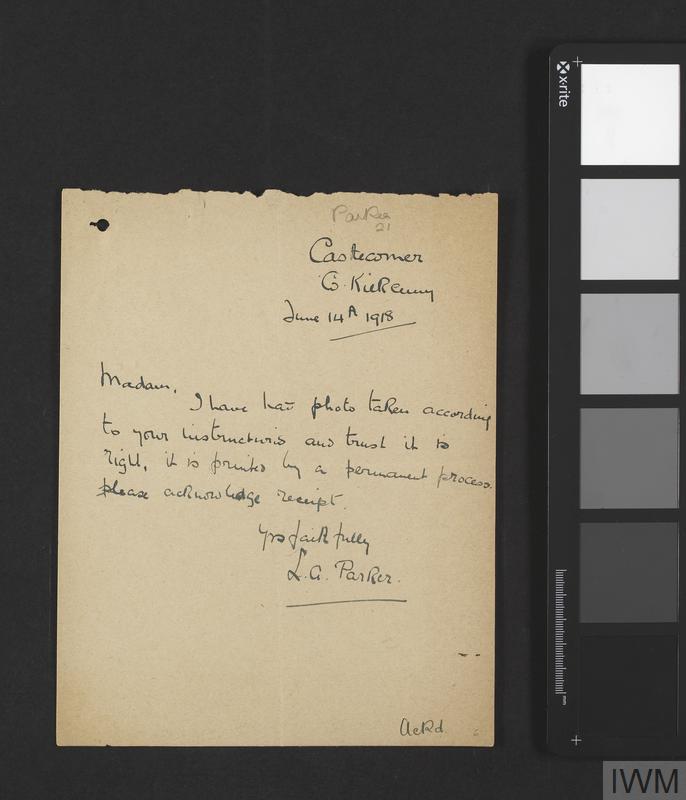 Parker
21
Castlecomer
Co. Kilkenny
June 14th 1918
Madam,
I have had photo taken according
to your instructions and trust it is
right, it is printed by a permanent process.
please acknowledge receipt.
Yrs faithfully
L. A. Parker.
Ackd
x-rite
mm
IWM